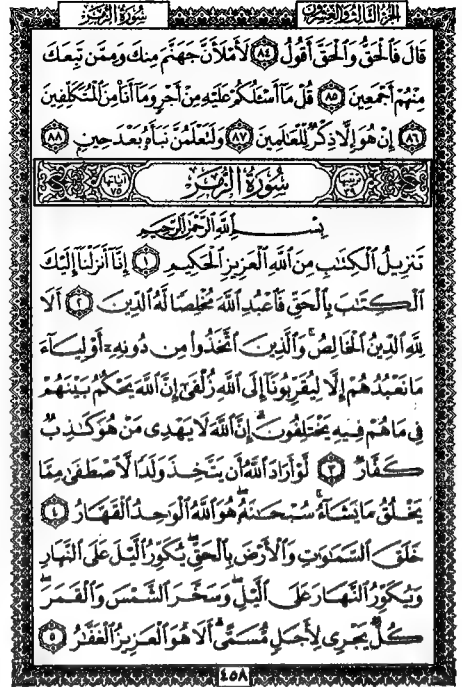 الجزء الثالث والعشرون
سُورَةُ الزُّمَر
قَالَ فَالْحَقُّ وَالْحَقَّ أَقُولُ ﴿٨٤﴾ لَأَمْلَأَنَّ جَهَنَّمَ مِنكَ وَمِمَّن تَبِعَكَ
مِنْهُمْ أَجْمَعِينَ ﴿٨٥﴾ قُلْ مَا أَسْـَٔلُكُمْ عَلَيْهِ مِنْ أَجْرٍ وَمَا أَنَا۠ مِنَ الْمُتَكَلِّفِينَ
﴿٨٦﴾ إِنْ هُوَ إِلَّا ذِكْرٌ لِّلْعَالَمِينَ ﴿٨٧﴾ وَلَتَعْلَمُنَّ نَبَأَهُ بَعْدَ حِينٍ ﴿٨٨﴾
ترتيبها ٣٩
سُورَةُ الزُّمَر
آياتها ٧٥
بِسْمِ اللَّهِ الرَّحْمَٰنِ الرَّحِيمِ
تَنزِيلُ الْكِتَٰبِ مِنَ اللَّهِ الْعَزِيزِ الْحَكِيمِ ﴿١﴾ إِنَّا أَنزَلْنَا إِلَيْكَ
الْكِتَٰبَ بِالْحَقِّ فَاعْبُدِ اللَّهَ مُخْلِصًا لَّهُ الدِّينَ ﴿٢﴾ أَلَا
لِلَّهِ الدِّينُ الْخَالِصُ ۚ وَالَّذِينَ اتَّخَذُوا مِن دُونِهِ أَوْلِيَاءَ
مَا نَعْبُدُهُمْ إِلَّا لِيُقَرِّبُونَا إِلَى اللَّهِ زُلْفَىٰ إِنَّ اللَّهَ يَحْكُمُ بَيْنَهُمْ
فِي مَا هُمْ فِيهِ يَخْتَلِفُونَ ۗ إِنَّ اللَّهَ لَا يَهْدِي مَنْ هُوَ كَٰذِبٌ
كَفَّارٌ ﴿٣﴾ لَّوْ أَرَادَ اللَّهُ أَن يَتَّخِذَ وَلَدًا لَّاصْطَفَىٰ مِمَّا
يَخْلُقُ مَا يَشَاءُ ۚ سُبْحَٰنَهُ ۖ هُوَ اللَّهُ الْوَٰحِدُ الْقَهَّارُ ﴿٤﴾
خَلَقَ السَّمَٰوَٰتِ وَالْأَرْضَ بِالْحَقِّ ۖ يُكَوِّرُ الَّيْلَ عَلَى النَّهَارِ
وَيُكَوِّرُ النَّهَارَ عَلَى الَّيْلِ ۖ وَسَخَّرَ الشَّمْسَ وَالْقَمَرَ ۖ
كُلٌّ يَجْرِي لِأَجَلٍ مُّسَمًّى ۗ أَلَا هُوَ الْعَزِيزُ الْغَفَّٰرُ ﴿٥﴾
٤٥٨